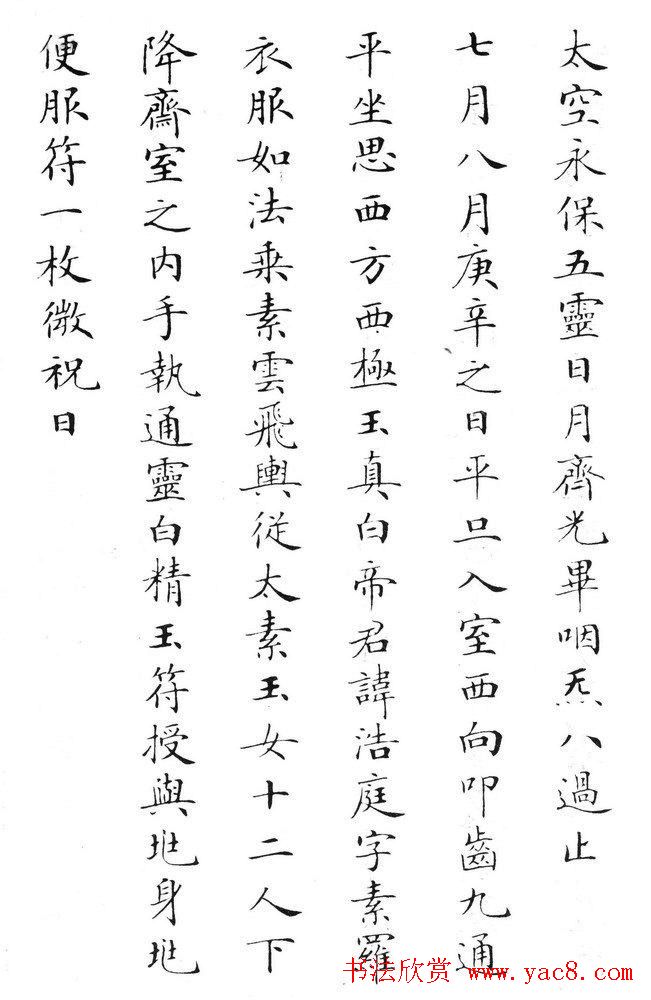 太空永保五靈日月齊光畢咽炁八過止
七月八月庚辛之日平旦入室西向叩齒九通
平坐思西方西極玉真白帝君諱浩庭字素羅
衣服如法乘素雲飛輿從太素玉女十二人下
降齋室之内手執通靈白精玉符授與兆身兆
便服符一枚微祝曰
书法欣赏 www.yac8.com